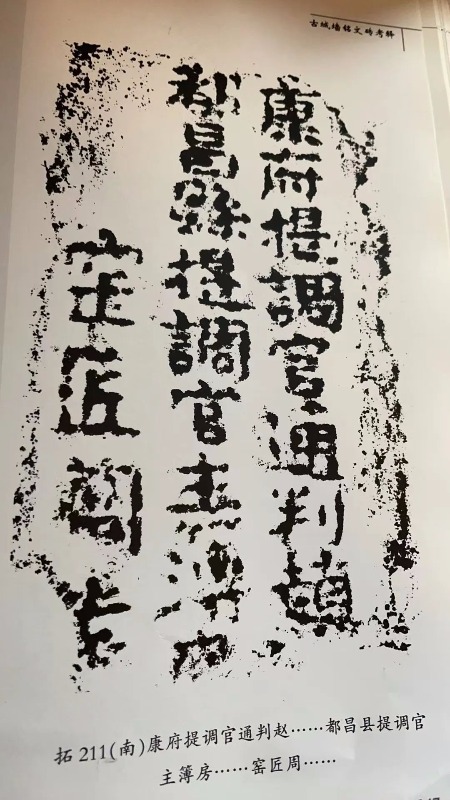 古城墙铭文砖考释
康府提調官通判
都昌縣提調官主簿
匠
拓 211(南)康府提调官通判赵……都昌县提调官
主簿房……窑匠周……